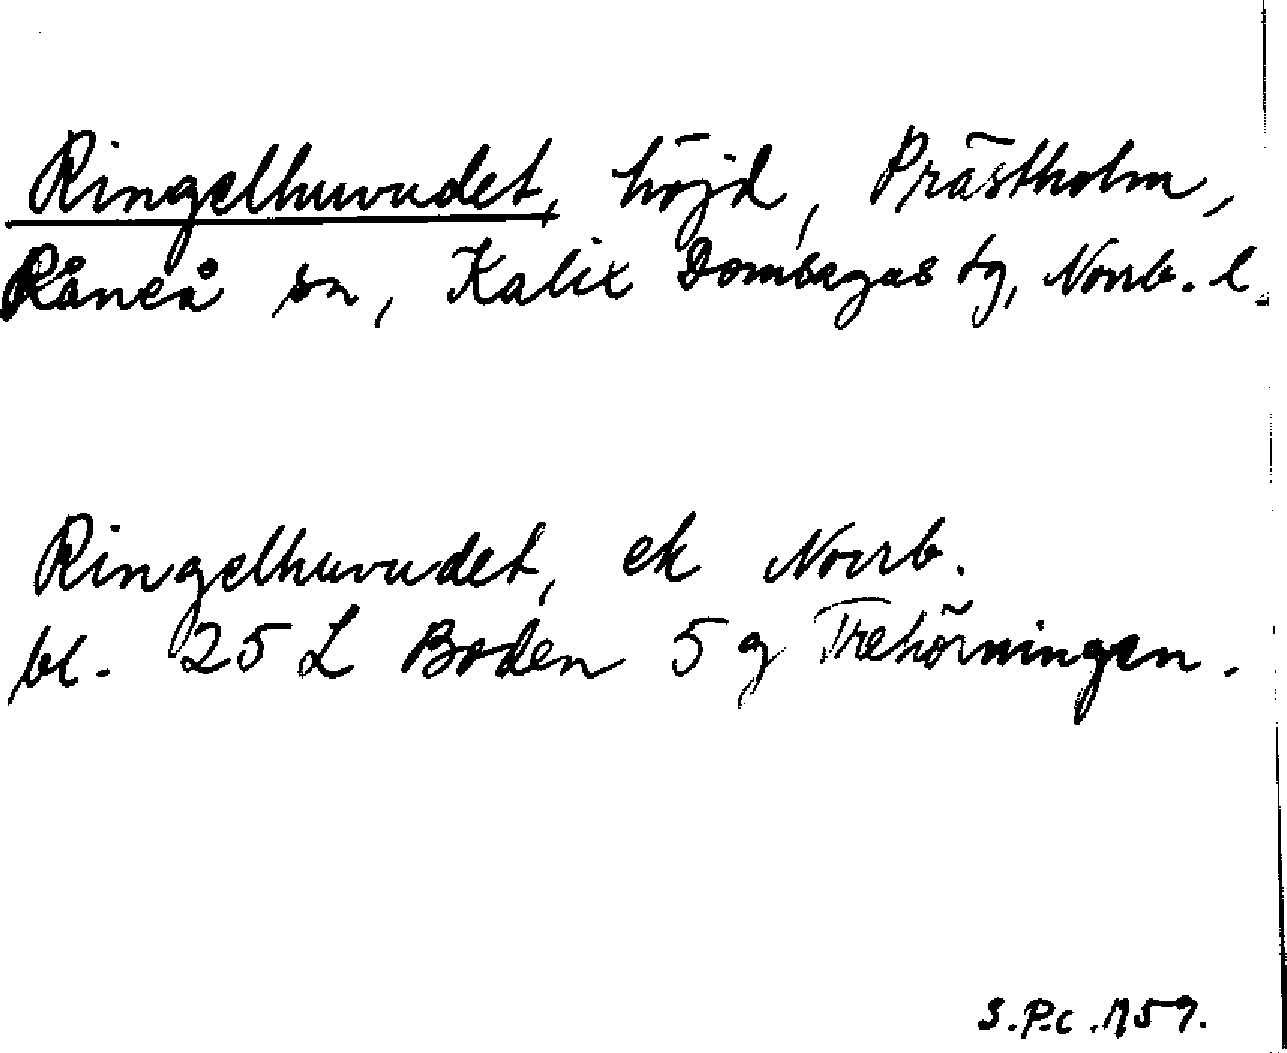 Ringelhuvudet, höjd, Prästholm,
Råneå sn, Kalix Domsagas tg, Norrb. l.
Ringelhuvudet, ek Norrb.
bl. 25 L Boden 5 g Trehörningen.
S.P.c. 1959.